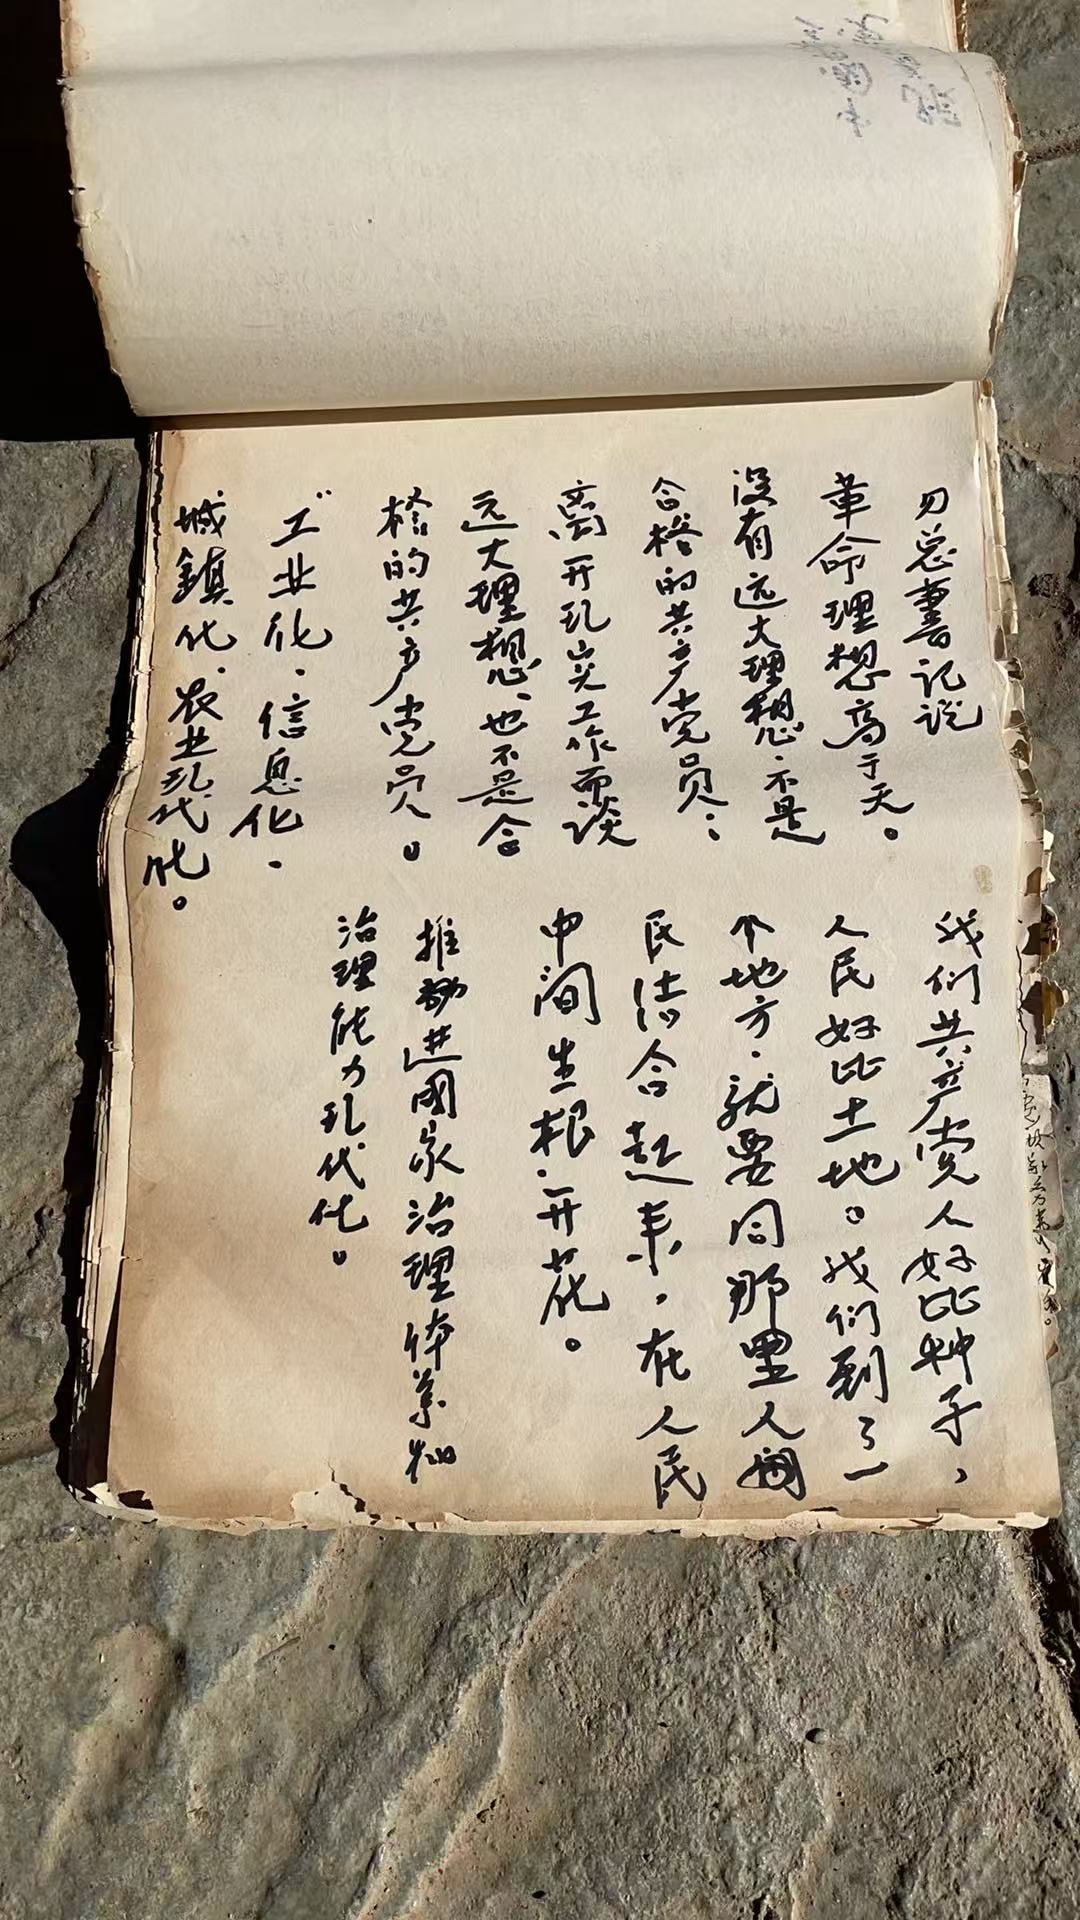 习总書记说
革命理想高于天。
没有远大理想、不是
合格的共产党员；
离开现实工作而谈
远大理想、也不是合
格的共产党员。
工业化、信息化、
城鎮化、农业现代
化。
我们共产党人好比种子，
人民好比土地。我们到了一
个地方、就要同那里人
民结合起来，在人民
中间生根、开花。
推进国家治理体系和
治理能力现代化。